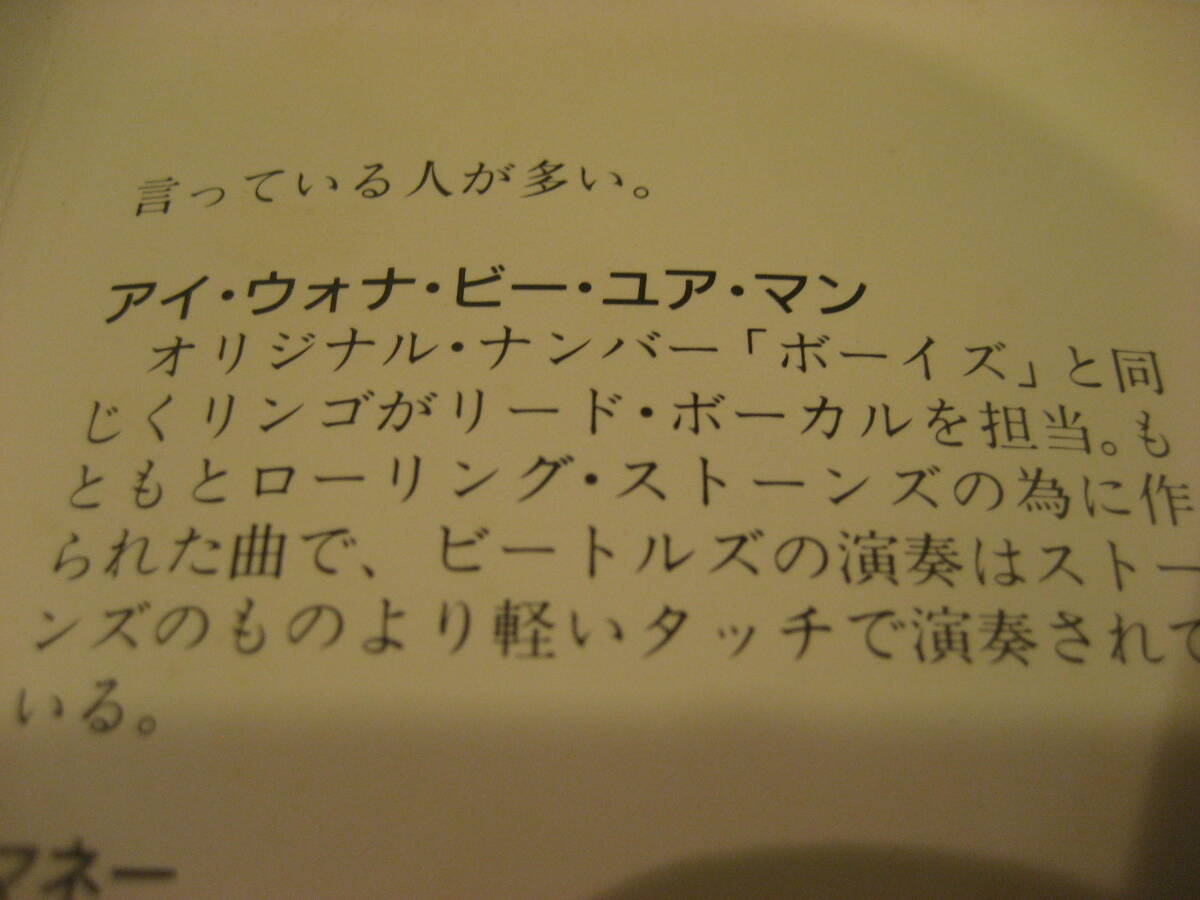 言っている人が多い。
アイ・ウォナ・ビー・ユア・マン
オリジナル・ナンバー「ボーイズ」と同
じくリンゴがリード・ボーカルを担当。も
ともとローリング・ストーンズの為に作
られた曲で、ビートルズの演奏はストー
ンズのものより軽いタッチで演奏されて
いる。
マネー